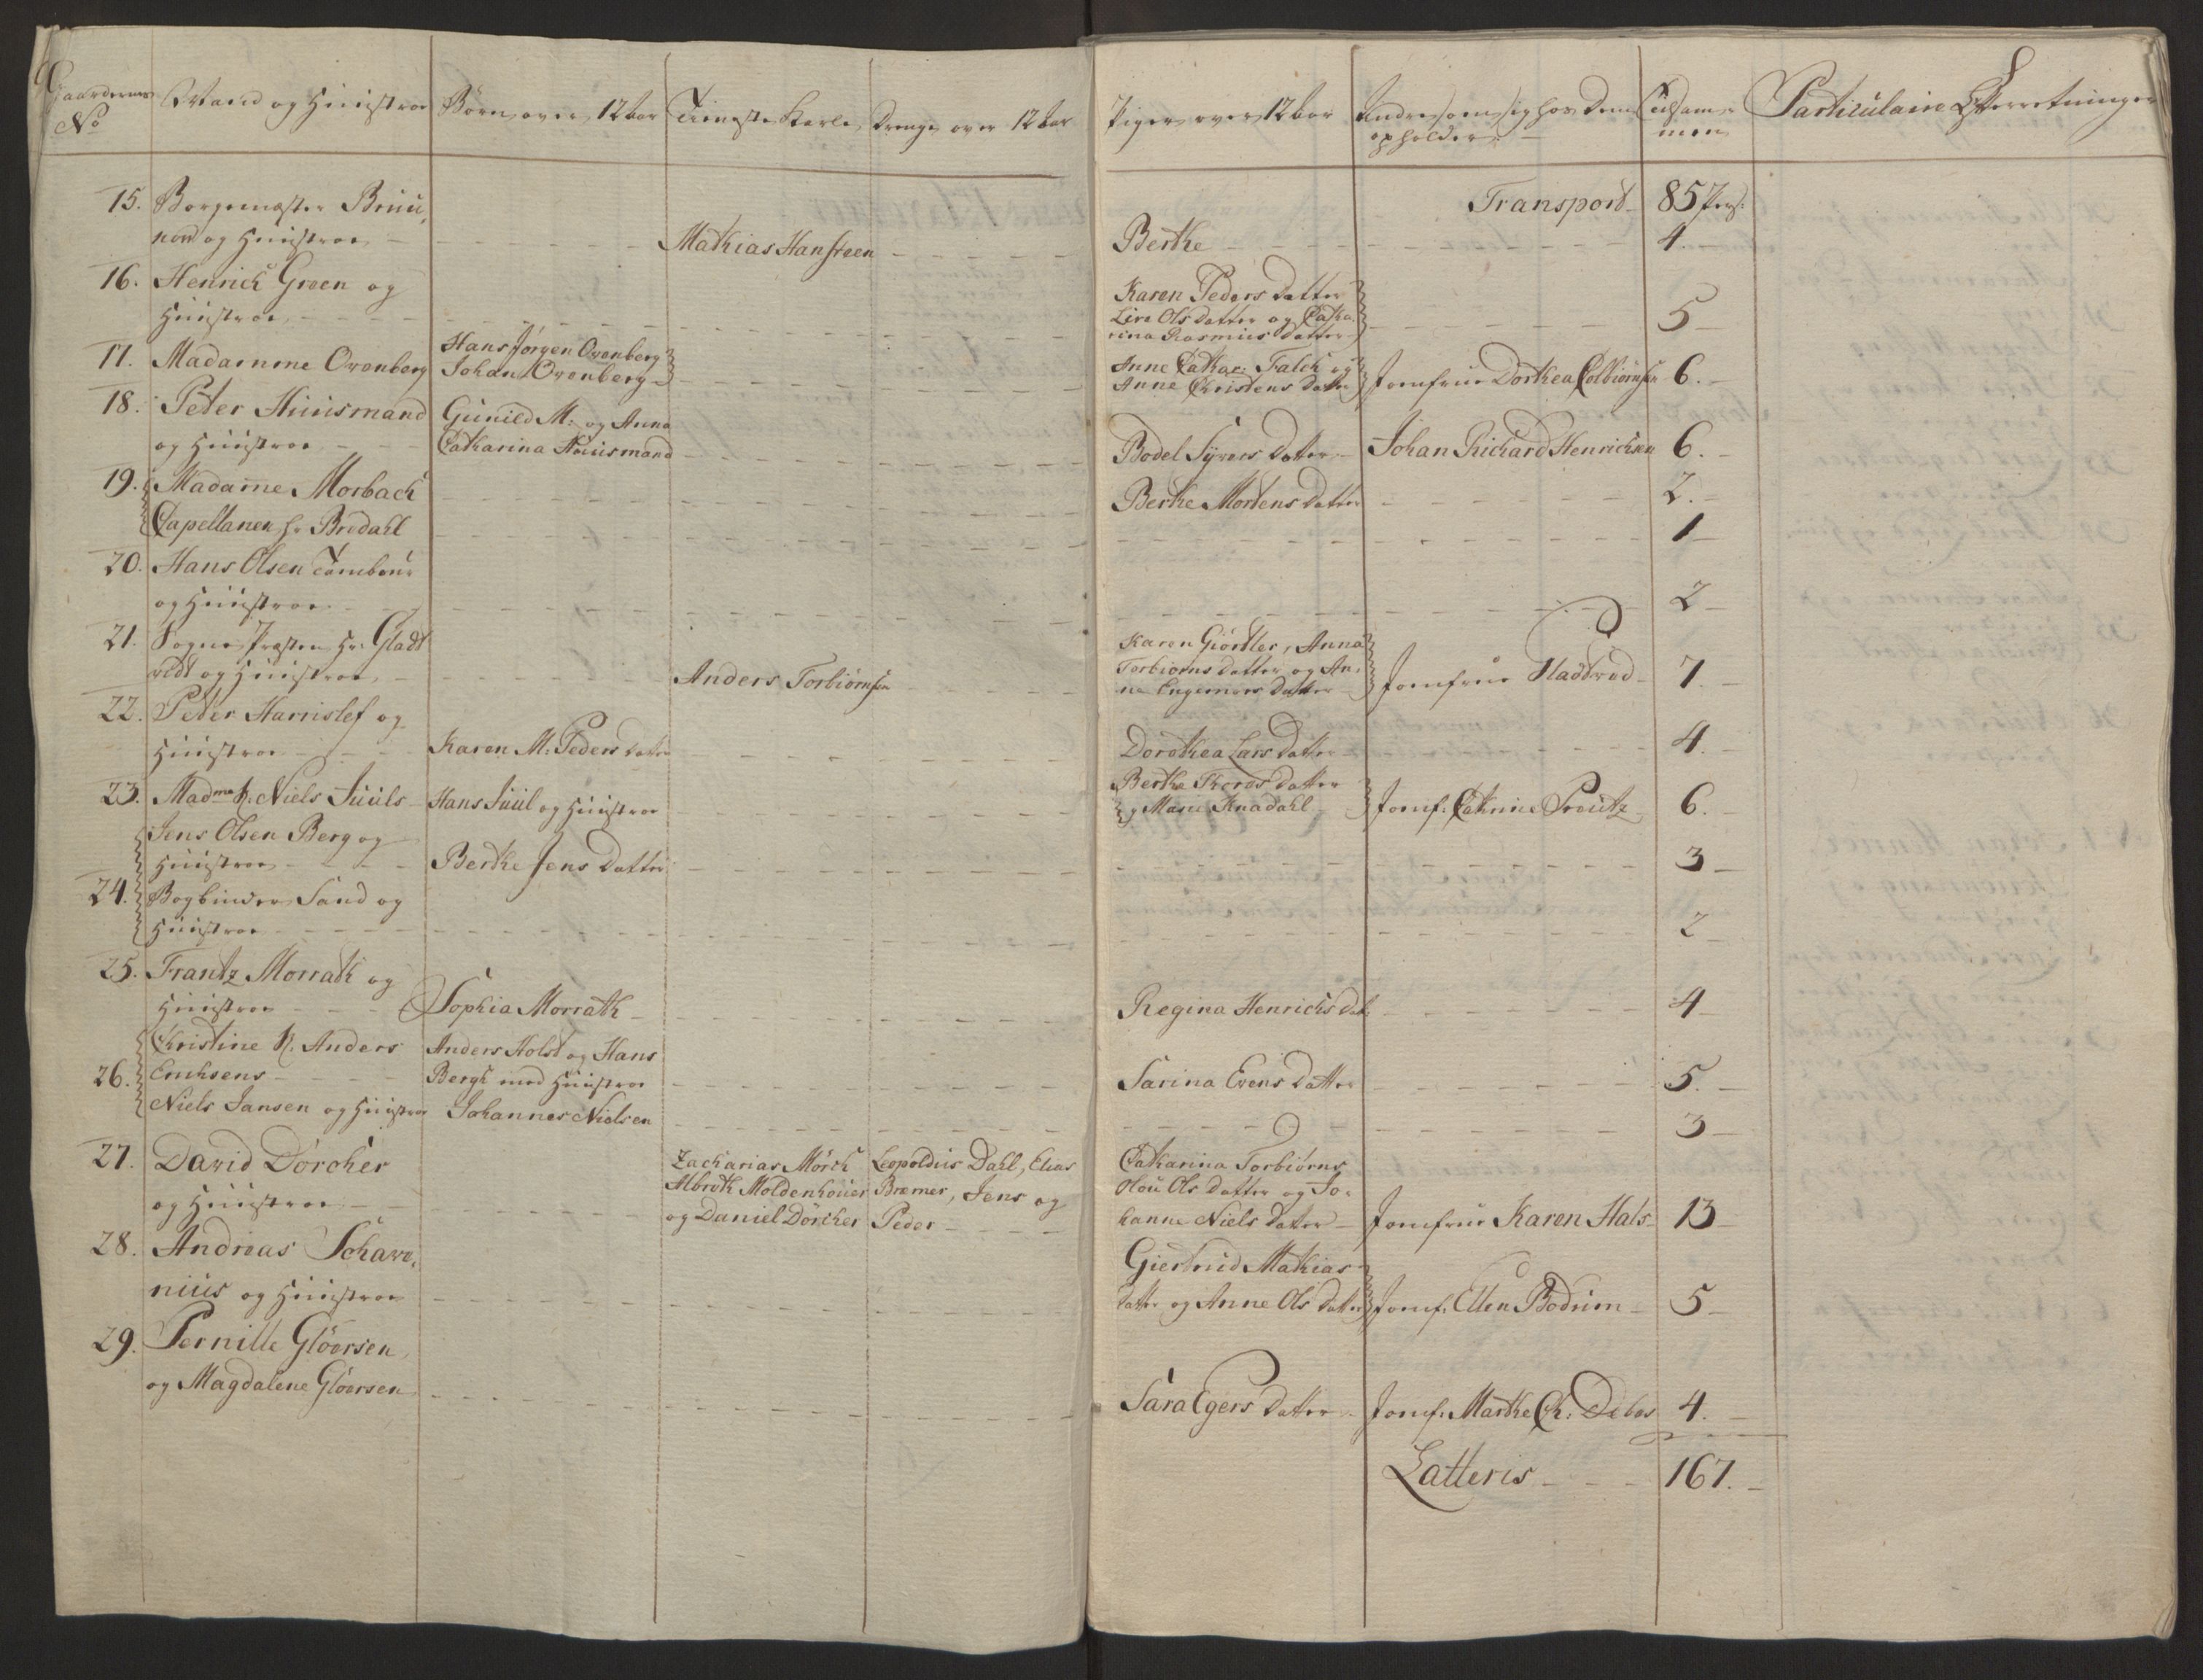 Gaardernes No
Mand og Huustroe
Børn over 12 Aar
Tieneste Karle
Drenge over 12 Aar
Piger over 12 Aar
Andre som sig hos dem opholder
Tilsammen
Particulaire Efterretninger
Transport 85 Pers:
15. Borgemester Bruu,
nord og Huustroe - Mathias Hansteen - Berthe - 4.
16. Henrich Green og
Huustroe -
Karen Peders Datter
Olsdatter og Catha
rina Rasmus datter
5
17. Madamme Ovenberg
Hans Jørgen Ovenberg
Johan Ovenberg
Anne Cathar: Falck og
Anne Christens Datter
Jomfrue Dorthea Colbiørnsen 6.
18. Peter Huusmand
og Huustroe
Gunild M: og Anna
Catharina Huusmand
Bodel Syvers Datter - Johan Richard Henrichsen 6.
19. Madame Morbach - Berthe Mortens datter - 2.
Capellanen hr Bredahl - 1
20. Hans Olsen Tambour
og Huustroe - 2
21. Sogne Præsten Hr: Gladt
vedt og Huustroe - Anders Torbiørnsen
Karen Giørtler, Anna
Torbiørns datter og An,
ne Engemors datter
Jomfrue Hadtvod - 7.
22. Peder Harrislef og
Huustroe - Karen M: Peders datter - Dorothea Lars datter - 4.
23. Madme Niels Juuls - Hans Juul og Huustroe
Berthe datter
og Maren Knadahl
Jomf: Cathrine Proutz 6.
Jens Olsen Berg og
Huustroe - Berthe Jens datter - 3
24. Bogbinder Sand og
Huustroe - 2
25. Frantz Morrath og
Huustroe - Sophia Morrath - Regina Henrichs dat: - 4
26. Christine Anders
Erichsens
Anders Holst og Hans
Bergh med Huustroe
Sarina Evens datter - 5.
Niels Jansen og Huustroe Johannes Nielsen - 3
27. David Dörcher
og Huustroe
Zacharias Mörch
Albreth Moldenhouer
og Daniel Dörcher
Leopoldus Dahl, Elias
Bremer, Jens og
Peder
Catharina Torbiørns
Olou Ols datter og Jo,
hanne Niels datter
Jomfrue Karen Hals 13
28. Andreas Schave,
nius og Huustroe
Giertrud Mathias
datter og Anne Ols datter
Jomf: Ellen Bodum - 5
29. Pernille Glöersen,
og Magdalene Glöersen
Sara Egers datter - Jomf: Marthe Ch: Debes 4.
Latteris - 167.